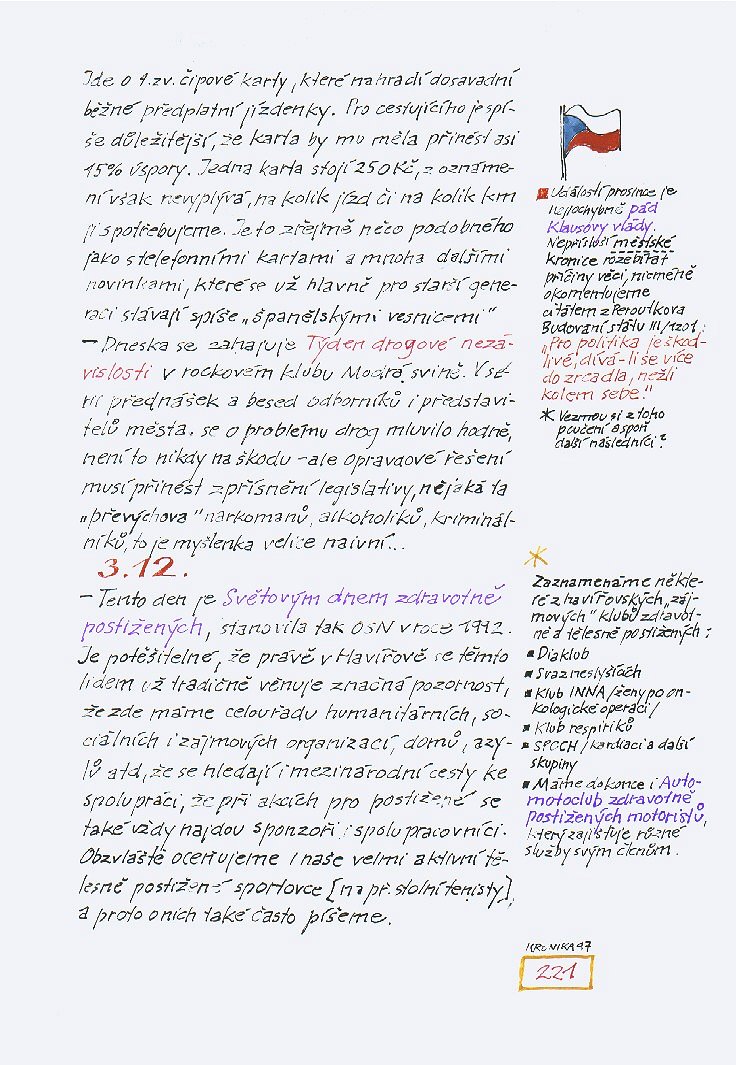 Jde o t.zv. čipové karty, které nahradí dosavadní
běžné předplatní jízdenky. Pro cestujícího je spí-
še důležitější, že karta by mu měla přinést asi
15% úspory. Jedna karta stojí 250 Kč, z oznáme-
ní však nevyplývá, na kolik jízd či na kolik km
ji spotřebujeme. Je to zřejmě něco podobného
jako s telefonními kartami a mnoha dalšími
novinkami, které se už hlavně pro starší gene-
raci stávají spíše „španělskými vesnicemi"
— Dneska se zahajuje Týden drogové nezá-
vislosti v rockovém klubu Modrá svině. V sé-
rii přednášek a besed odborníků i představi-
telů města. se o problému drog mluvilo hodně,
není to nikdy na škodu - ale opravdové řešení
musí přinést zpřísnění legislativy, nějaká ta
„převýchova" narkomanů, alkoholiků, kriminál-
níků, to je myšlenka velice naivní...
3.12.
— Tento den je Světovým dnem zdravotně
postižených, stanovila tak OSN v roce 1992.
Je potěšitelné, že právě v Havířově se těmto
lidem už tradičně věnuje značná pozornost,
že zde máme celou řadu humanitárních, so-
ciálních i zájmových organizací, domů, azy-
lů atd, že se hledají i mezinárodní cesty ke
spolupráci, že při akcích pro postižené se
také vždy najdou sponzoři i spolupracovníci.
Obzvláště oceňujeme i naše velmi aktivní tě-
lesně postižené sportovce [např. stolní tenisty],
a proto o nich také často píšeme.
Událostí prosince je
nepochybně pád
Klausovy vlády.
Nepřísluší městské
kronice rozebírat
příčiny věcí, nicméně
okomentujeme
citátem z Peroutkova
Budování státu III/1201:
„Pro politika je škod-
livé, dívá-li se více
do zrcadla, nežli
kolem sebe."
* Vezmou si z toho
poučení aspoň
další následníci?
*
Zaznamenáme někte-
ré z havířovských „záj-
mových" klubů zdravot-
ně a tělesně postižených:
▪ Diaklub
▪ Svaz neslyšících
▪ Klub INNA /ženy po on-
kologické operaci/
▪ Klub respiriků
▪ SPCCH /kardiaci a další
skupiny
▪ Máme dokonce i Auto-
motoclub zdravotně
postižených motoristů,
který zajišťuje různé
služby svým členům.
KRONIKA 97
221